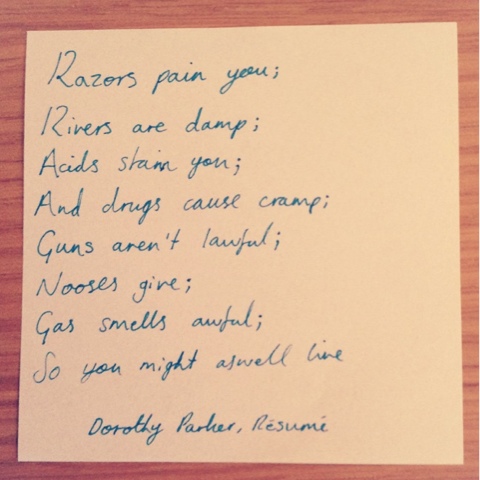 Razors pain you;
Rivers are damp;
Acids stain you;
And drugs cause cramp;
Guns aren't lawful;
Nooses give;
Gas smells awful;
So you might aswell live
Dorothy Parker, Résumé